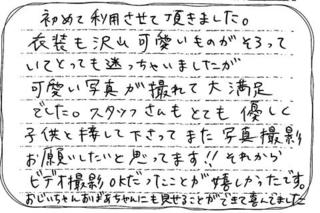 初めて利用させて頂きました。
衣装も沢山可愛いものがそろって
いてとっても迷っちゃいましたが
可愛い写真が撮れて大満足
でした。スタッフさんもとても優しく
子供と接して下さってまた写真撮影
お願いしたいと思ってます!!それから
ビデオ撮影OKだったことが嬉しかったです。
おじいちゃんおばあちゃんにも見せることができて喜んでました